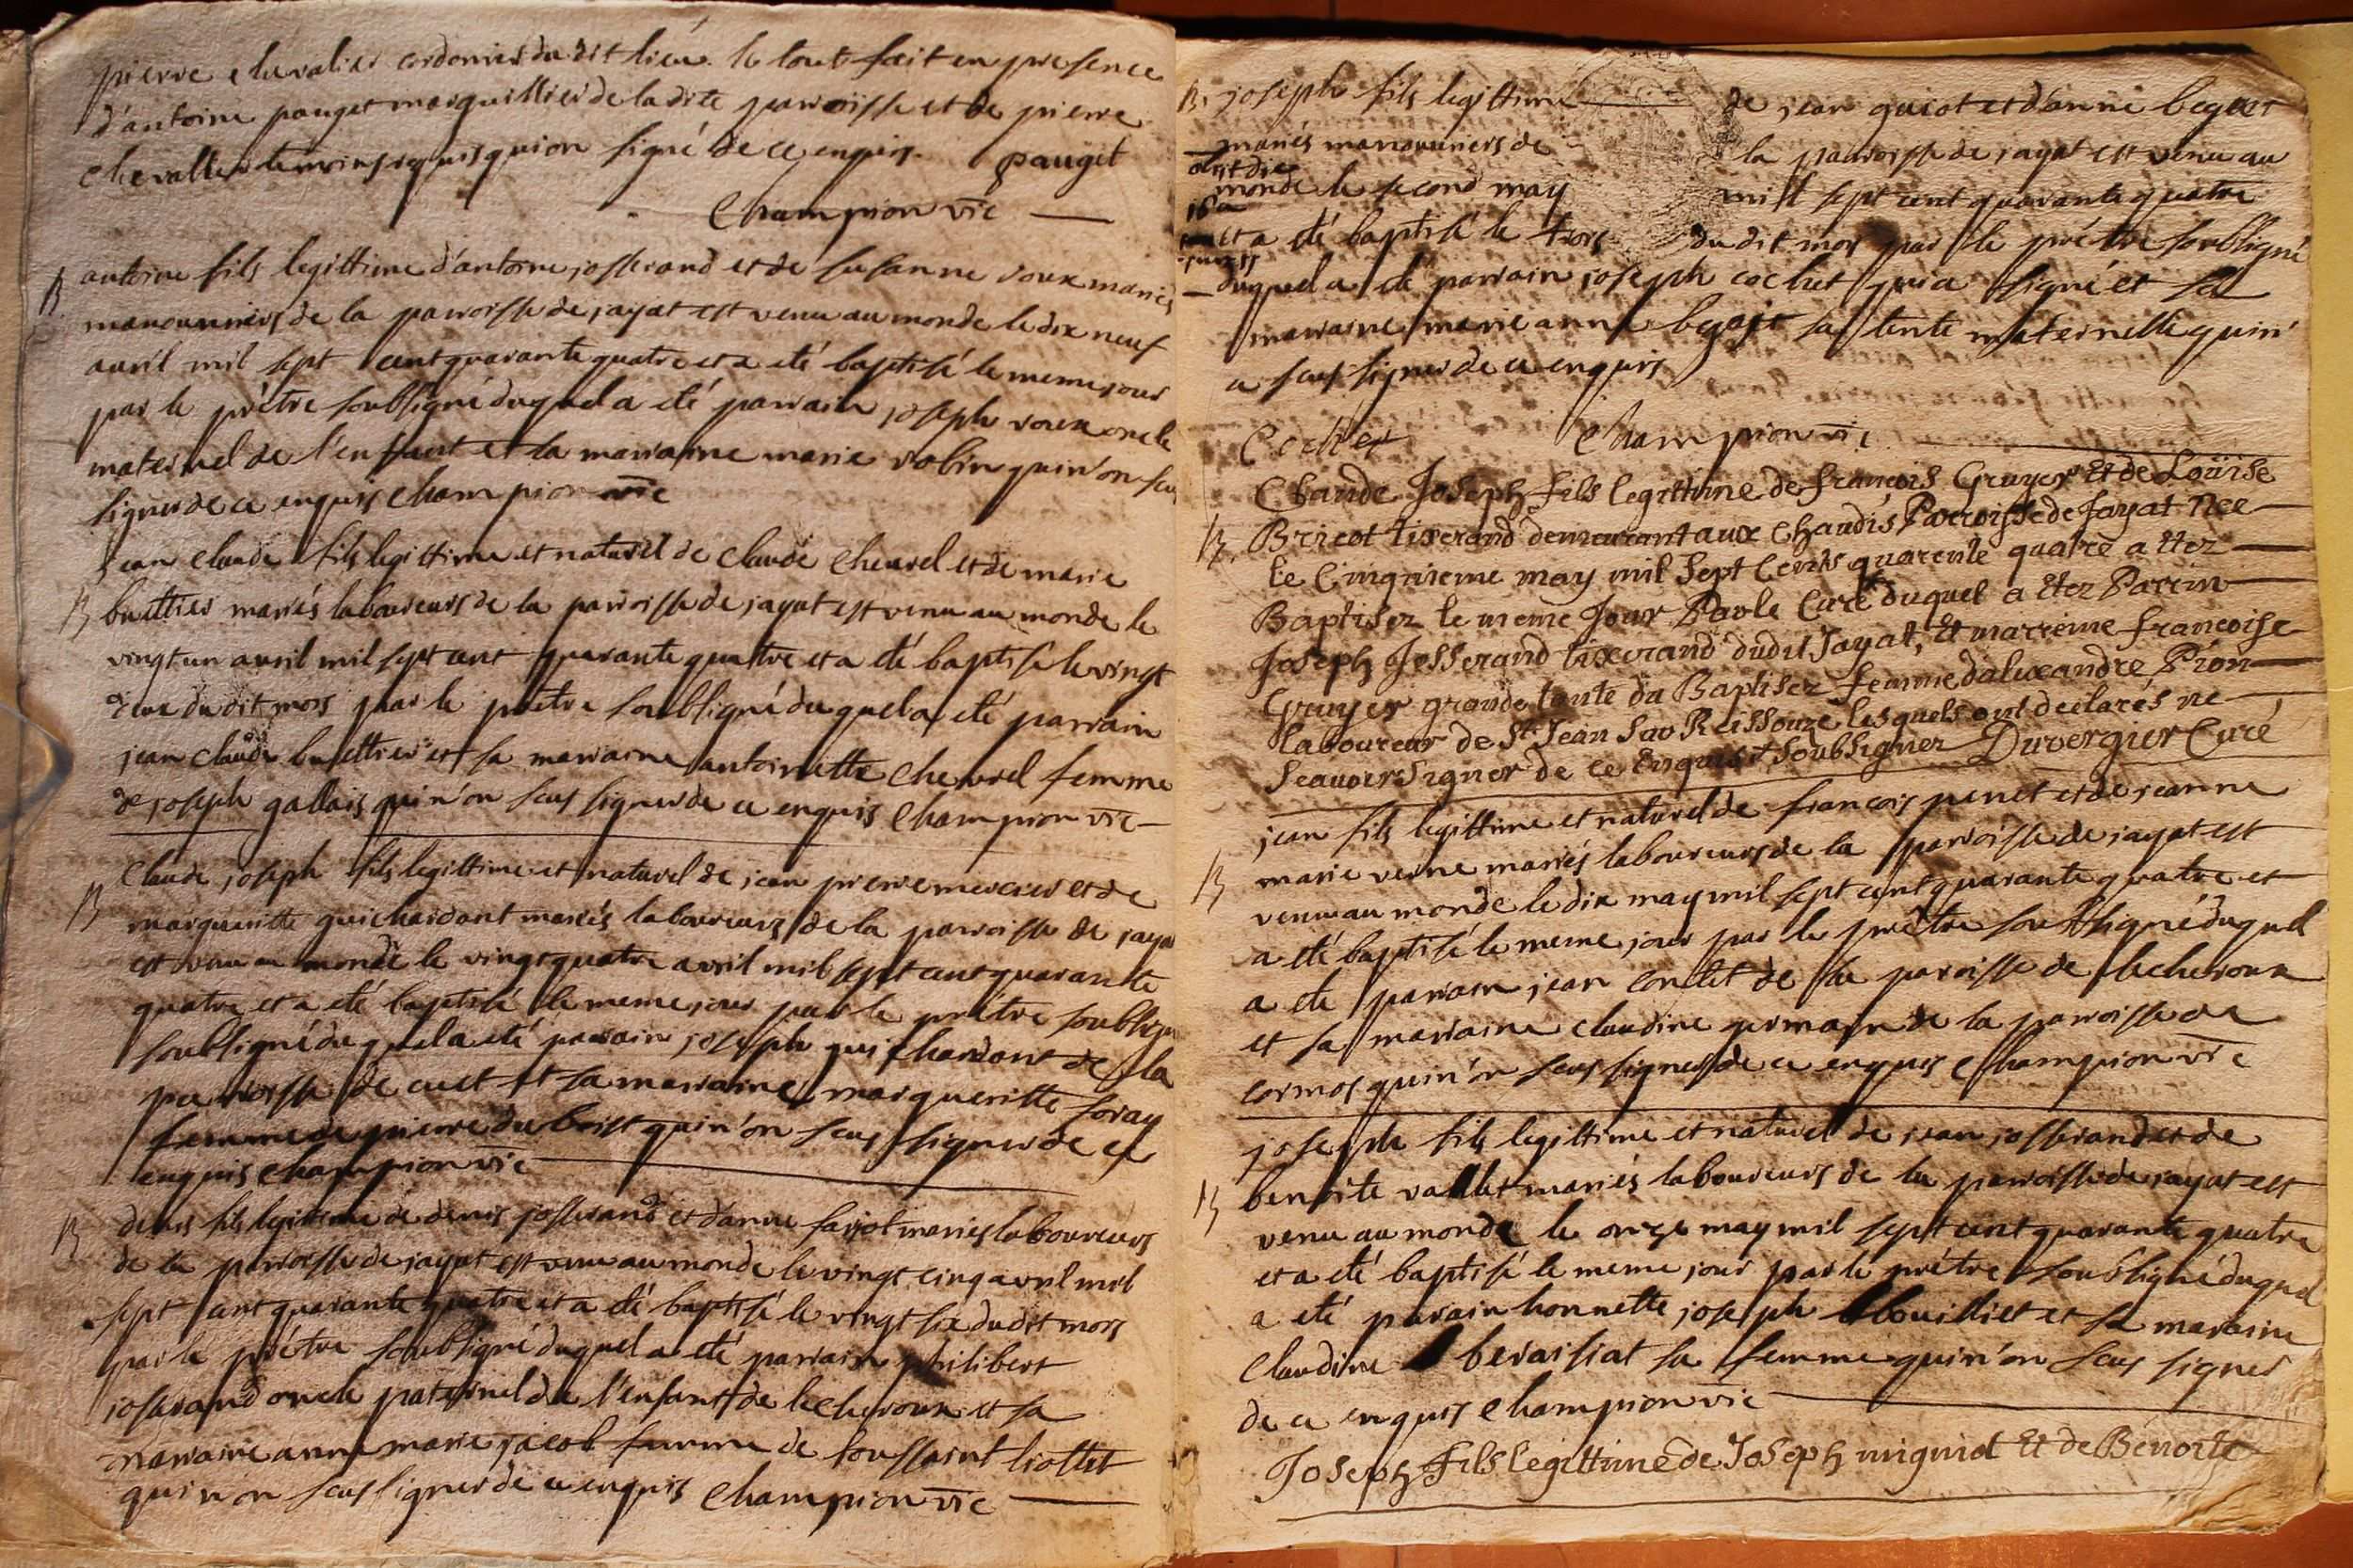 pierre chevalier cordonier du dit lieu. le tout fait en presence
d'antoine pauget marguillier de la dite parroisse et de pierre
chevallier temoins requis qui on signé de ce enquis. pauget
Champion vic
B
antoine fils legittime d'antoine josserand et de susanne roux mariés
manouvriers de la parroisse de jayat est venu au monde le dix neuf
avril mil sept cent quarante quatre et a eté baptisé le meme jour
par le prêtre soubsigné duquel a eté parrain joseph roux oncle
maternel de l'enfant et la marraine marie robin qui n'on sçu
signer de ce enquis Champion vic
B
jean claude fils legittime et naturel de claude chevrel et de marie
buettier mariés laboureurs de la parroisse de jayat est venu au monde le
vingt un avril mil sept cent quarante quatre et a eté baptisé le vingt
deux du dit mois par le prêtre soubsigné duquel a eté parrain
jean claude buettier et sa marraine antoinette chevrel femme
de joseph gallais qui n'on sçus signer de ce enquis Champion vic
B
Claude joseph fils legittime et naturel de jean pierre mercier et de
margueritte guichardant mariés laboureurs de la parroisse de jayat
est venu au monde le vingt quatre avril mil sept cent quarante
quatre et a eté baptisé le meme jour par le prêtre soubsigné
soubsigné duquel a eté parrain joseph guichardant de la
parroisse de cuet et sa marraine margueritte foray
femme de pierre du boist qui n'on sçus signer de ce
enquis Champion vic
B
denis fils legittime de denis josserand et d'anne farjot mariés laboureurs
de la parroisse de jayat est venu au monde le vingt cinq avril mil
sept cent quarante quatre et a eté baptisé le vingt six du dit mois
par le prêtre soubsigné duquel a eté parrain philibert
josserand oncle paternel de l'enfant de lecheroux et sa
marraine anne marie jacob femme de toussaint liottet
qui n'on sçus signer de ce enquis Champion vic
B
joseph fils legittime de jean guiot et d'anne beguet
mariés manouvriers de la parroisse de jayat est venu au
monde le second may mil sept cent quarante quatre
et a eté baptisé le trois du dit mois par le prêtre soubsigné
duquel a eté parrain joseph cochet qui a signé et sa
marraine marie anne beguet sa tente maternelle qui n'
a sçus signer de ce enquis
Cochet Champion vic
B
Claude Joseph fils legittime de françois Gruyer Et de Loüise
Bricot tixerand demeurant aux Chaudis Parroisse de Jayat Née
le Cinquieme may mil Sept Cents quarente quatre a Etez
Baptisez le meme Jour Par le Curé duquel a Etez Parein
Joseph Josserand tixerand dudit Jayat, Et marreine francoise
Gruyer grande tante du Baptisez femme dalixandre Pion
laboureur de St Jean Sur Reissouze lesquels ont declarés ne
Scauoir Signer de ce Enquis Et Soubsignez Duvergier Curé
B
jean fils legittime et naturel de françois penet et de jeanne
marie verne mariés laboureurs de la parroisse de jayat est
venu au monde le dix may mil sept cent quarante quatre et
a eté baptisé le meme jour par le prêtre soubsigné duquel
a eté parrain jean contet de la paroisse de lecheroux
et sa marraine claudine germain de la parroisse de
cormos qui n'on sçus signer de ce enquis Champion vic
B
joseph fils legittime et naturel de jean josserand et de
benoite vallet mariés laboureurs de la parroisse de jayat est
venu au monde le onze may mil sept cent quarante quatre
et a eté baptisé le meme jour par le prêtre soubsigné duquel
a eté parain honnette joseph bouilliet et sa maraine
Claudine beraisiat sa femme qui n'on sçus signer
de ce enquis Champion vic
Joseph Fils legittime de Joseph migniot Et de Benoite